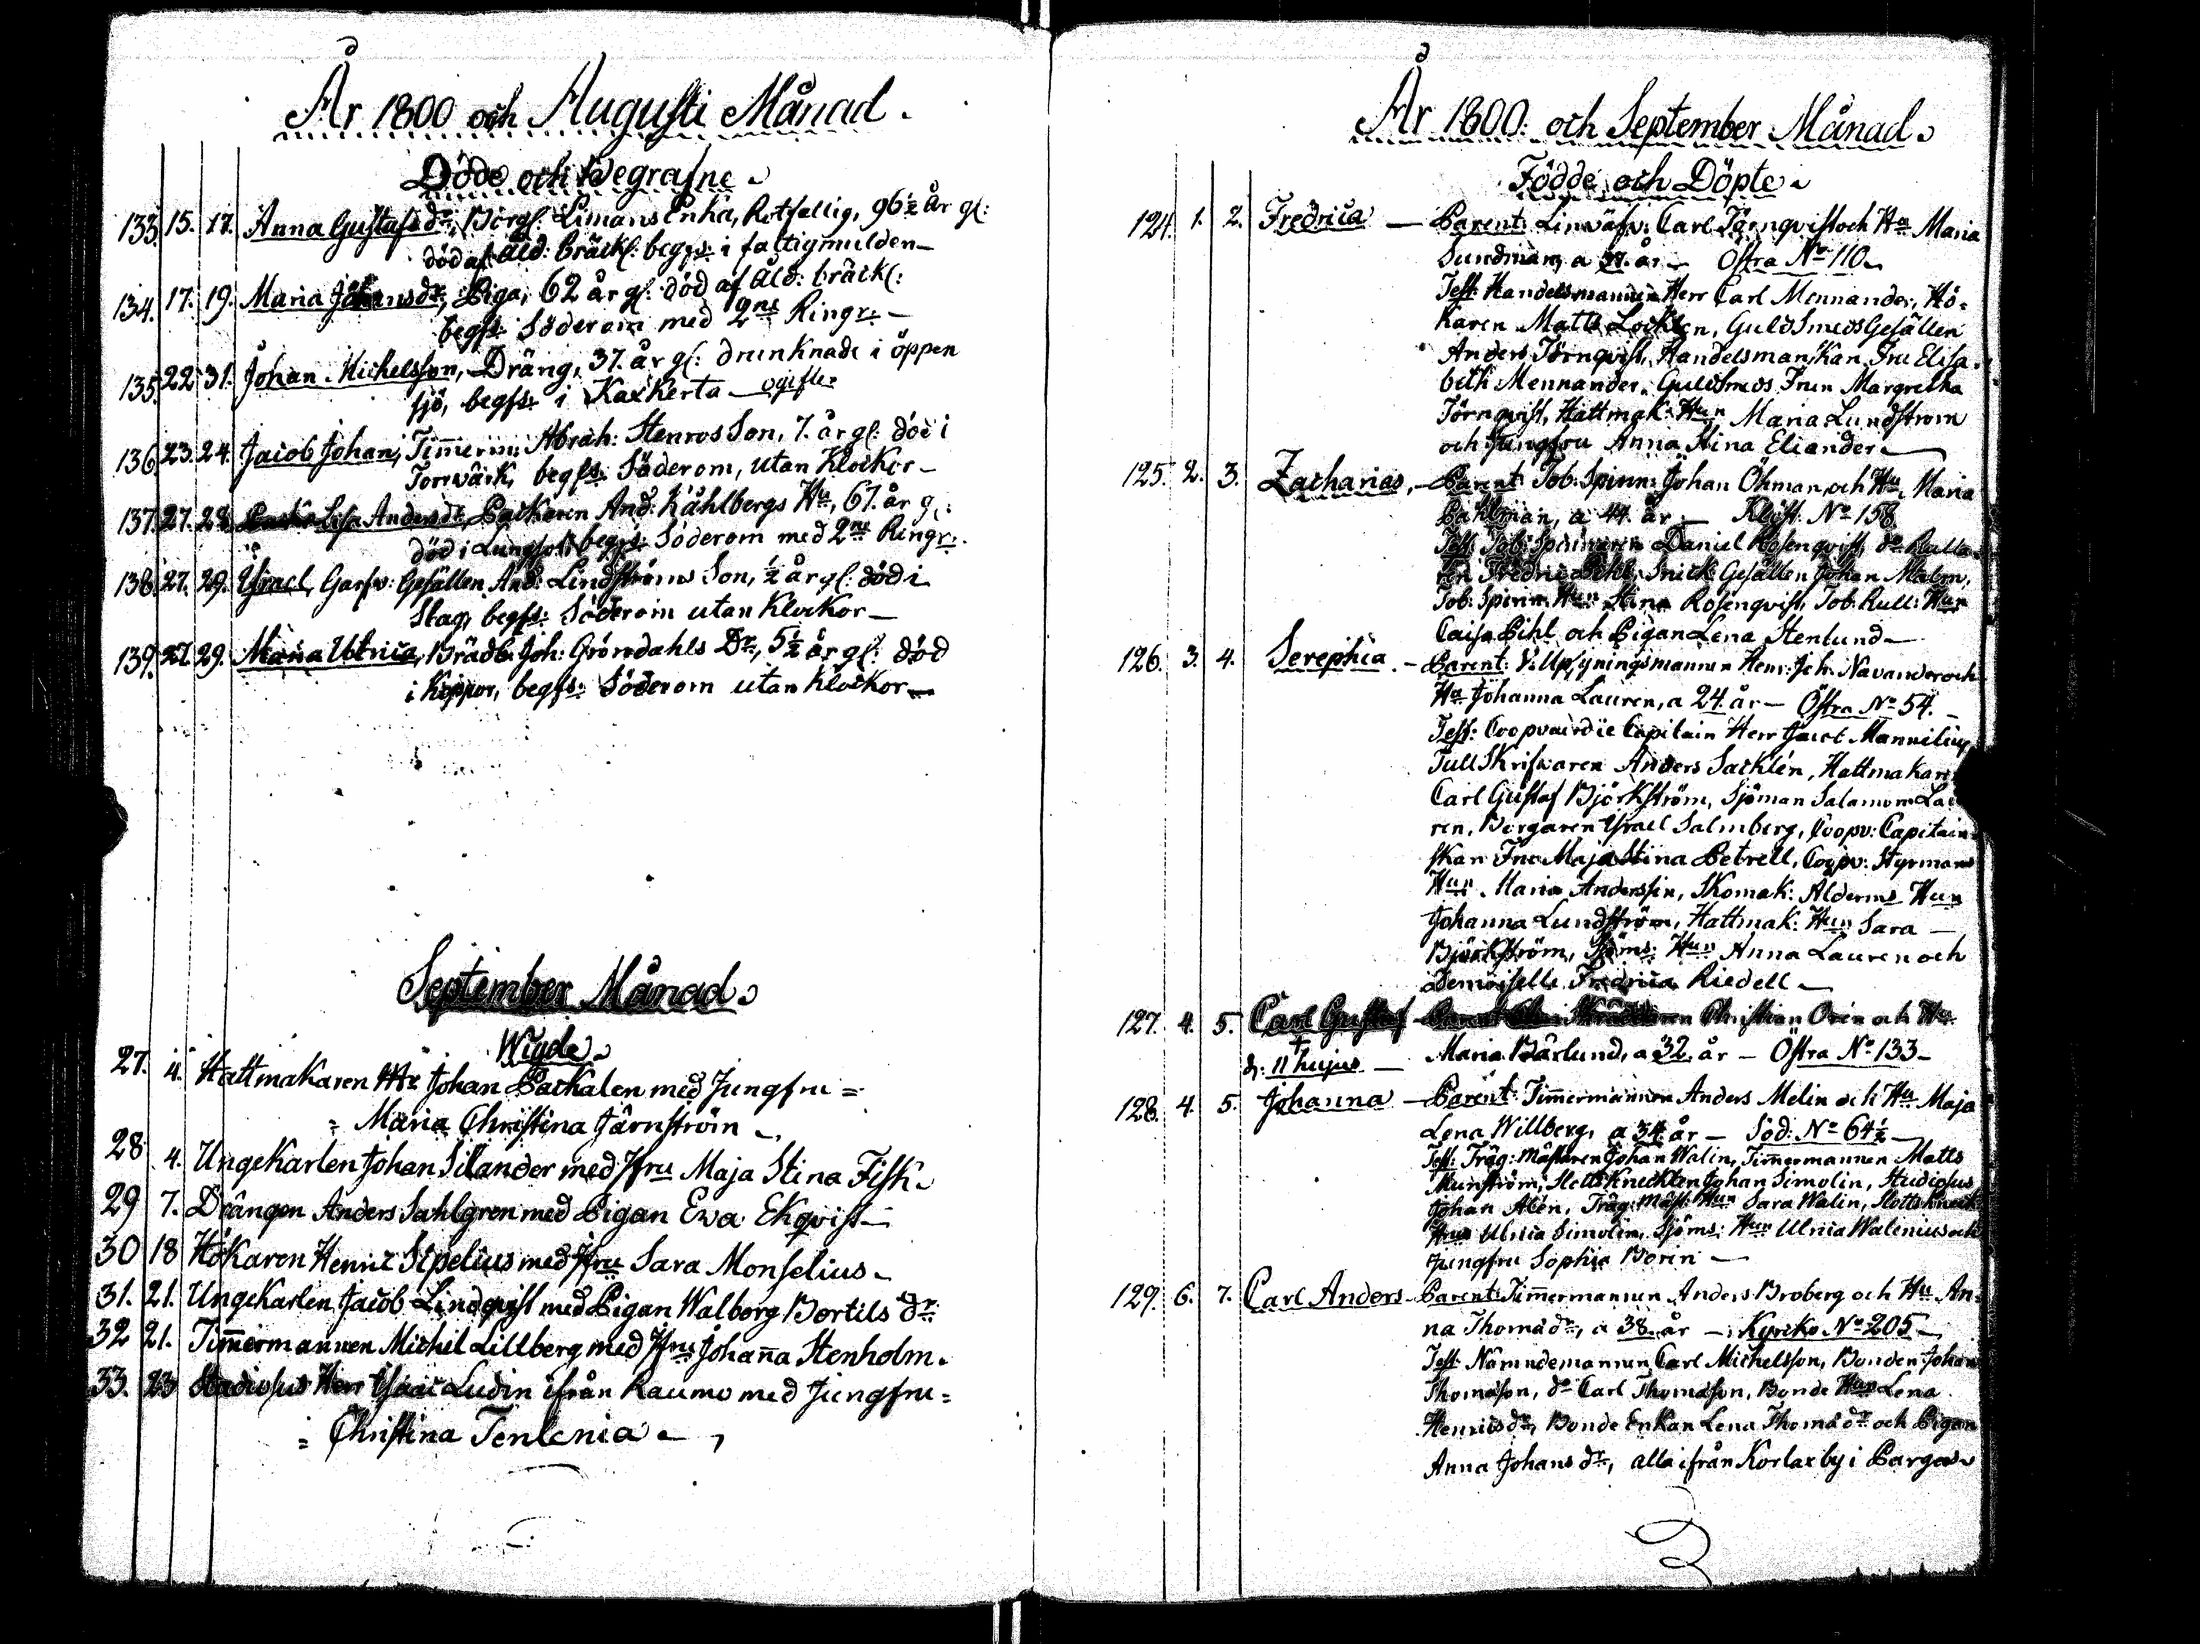 År 1800 och Augusti Månad.
Döde och Begrafne.
133. 15. 17. Anna Gustafs dr, Borgs: Limans Enka, Rotfallig, 96 ½ år gl:
död af Åld: bräckl: begrs: i fattigmulden—
134. 17. 19. Maria Johans dr, Piga, 62 år gl: död af Åld: bräckl:
begfs: Söderom med 2ne Ringr:—
135. 22 31. Johan Michelsson, Dräng, 37. år gl: drunknade i öppen
sjö, begfs: i Kaxkerta — ogifter
136 23. 24. Jacob Johan, Timerm: Abrah: Stenros Son, 7. år gl: död i
Torrwärk, begfs: Söderom, utan Klockor—
137. 27. 28. Lisa Anders dr, Packaren And: Kåhlbergs Hu, 67. år g:
död i Lungsot, begfs: Söderom med 2ne Ringr:
138. 27. 29. Israel, Garfv: Gesällen And: Lindströms Son, ½ år gl: död i
Slag, begfs: Söderom utan Klockor—
139. 27. 29. Maria Ulrica, Brädb: Joh: Gröndahls Dr, 5 ½ år gl: död
i Koppor, begfs: Söderom utan Klockor—
September Månad.
Wigde.
27. 4. Hattmakaren Mr Johan Packalen med Jungfru =
= Maria Christina Järnström—
28 4. Ungekarlen Johan Silander med Jfru Maja Stina Fisk.
29 7. Drängen Anders Sahlgren med Pigan Ewa Ekqvist—
30 18 Hökaren Henric Sipelius med Jfru Sara Monselius.
31. 21. Ungekarlen Jacob Lindqvist med Pigan Walborg Bertils dr:
32 21. Timmermannen Michel Lillberg med Jfru Johanna Stenholm.
33. 23 Studiosus Herr Isaac Ludin ifrån Raumo med Jungfru =
= Christina Tenlenia.
År 1800. och September Månad.
Födde och Döpte.
124. 1. 2. Fredrica — Parent: Linväfv: Carl Törnqvist och Hu Maria
Sundman, a 37. år — Östra No 110.
Test: Handelsmannen Herr Carl Mennander, Hö-
karen Matts Locklen, GuldSmedsGesällen
Anders Törnqvist, Handelsmanskan Fru Elisa-
beth Mennander, GuldSmeds Frun Margretha
Törnqvist, Hattmak: Hun Maria Lundstrom
och Jungfru Anna Stina Eliander—
125. 2. 3. Zacharias, — Parent: Tob: Spinn: Johan Öhman, och Hu Maria
Påhlman, a 44. år — Klöst. No 158
Test: Tob: Spinnaren Daniel Rosenqvist, do Rulla-
ren Fredric Pihl, Snick: Gesällen Johan Malm,
Tob: Spinn: Hun Stina Rosenqvist, Tob: Rull: Hun
Caisa Pihl och Pigan Lena Stenlund—
126. 3. 4. Serephia. — Parent: V: Uppsyningsmannen Henr: Joh: Navander och
Hu Johanna Lauren, a 24. år — Östra No 54.—
Test: Coopvairdie Capitain Herr Jacob Mannelius
TullSkrifvaren Anders Sacklén, Hattmakaren
Carl Gustaf Björkström, Sjöman Salamon Lau-
ren, Borgaren Israel Salmberg, Coopv: Capitain-
skan Fru Maja Stina Petrell, Coopv: Styrmans
Hun Maria Anderssin, Skomak: Alderms Hun
Johanna Lundström, Hattmak: Hun Sara —
Björkström, Sjöms: Hun Anna Lauren och
Demoiselle Fredrica Riedell—
127. 4. 5. Carl Gustaf — Christian Oren och Hu
+
d: 11 hujus — Maria Bärlund, a 32. år — Östra No 133—
128. 4. 5. Johanna — Parent: Timmermannen Anders Melin och Hu Maja
Lena Willberg, a 34. år — Söd: No 64 ½—
Test: Träg: Mästaren Johan Walin, Timmermannen Matts
Munström, Slotts Knickten Johan Simolin, Studiosus
Johan Alén, Träg: Mäst: Hun Sara Walin, Slotts Kneck
Hun Ulrica Simolin, Sjöms: Hun Ulrica Walenius och
Jungfru Sophia Borin—
129. 6. 7. Carl Anders — Parent: Timmermannen Anders Broberg och Hu An-
na Thoma dr, a 38. år — Kyrko No 205—
Test: Nämndemannen Carl Michelsson, Bonden Johan
Thomasson, do Carl Thomasson, Bonde Hun Lena
Henrics dr, Bonde Enkan Lena Thoma dr och Pigan
Anna Johans dr, alla ifrån Korlax by i Pargas